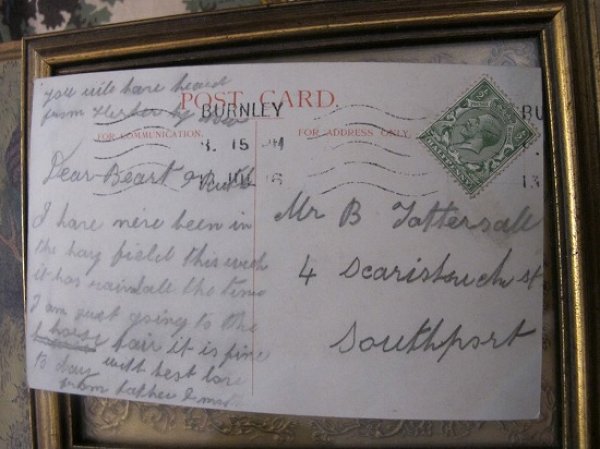 You will have heard
from Herber by now
POST CARD.
BURNLEY
FOR COMMUNICATION.
FOR ADDRESS ONLY.
8. 15 PM
Dear Beart &
I have nere been in
the hay field this week
it has rain all the time
I am just going to the
horse fair it is fine
to day with best love
from father &
Mr B Tattersall
4 Scarisbrick st
Southport
BU
13